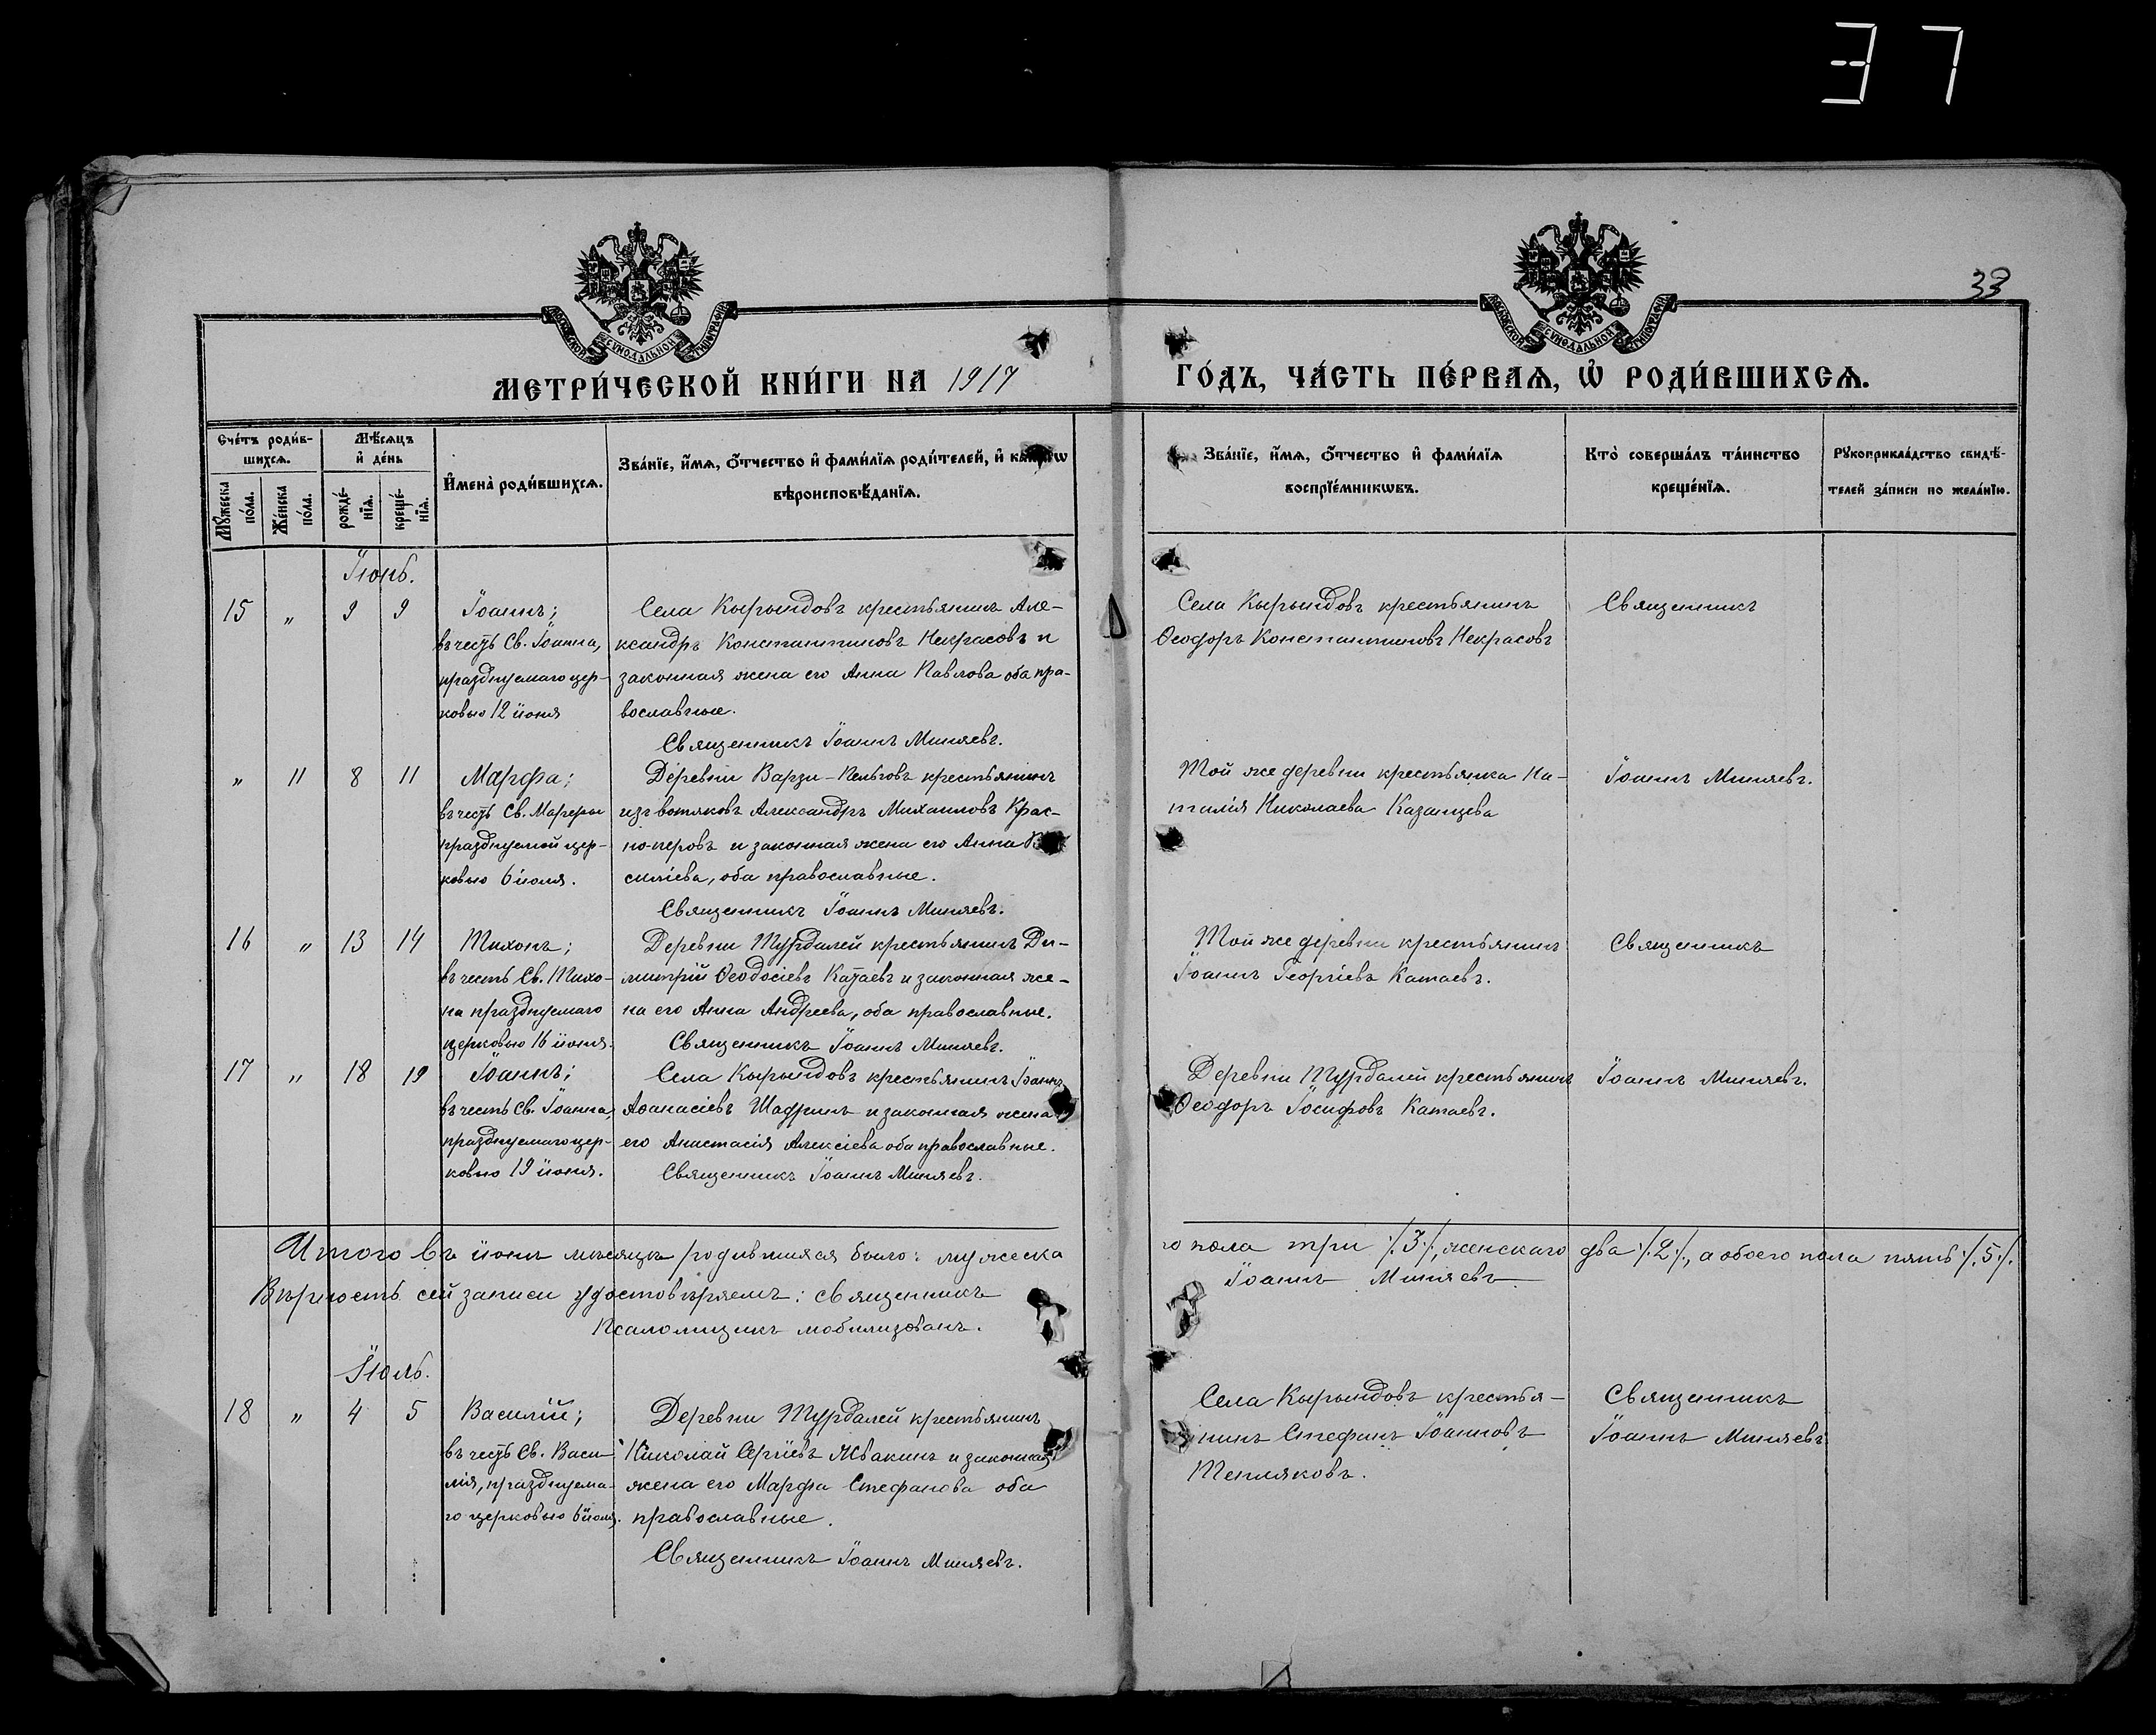 37
33
МОСКОВСКОЙ СѴНОДАЛЬНОЙ ТИПОГРАФІИ
МОСКОВСКОЙ СѴНОДАЛЬНОЙ ТИПОГРАФІИ
МЕТРИ́ЧЕСКОЙ КНИ́ГИ НА 1917 ГО́ДЪ, ЧА́СТЬ ПЕ́РВАЯ, Ѽ РОДИ́ВШИХСЯ.
Сче́тъ роди́в-
шихся.
Мѣ́сяцъ
и҆ де́нь
Мꙋ́жеска по́ла.
Же́нска по́ла.
рожде́-нїя.
креще́-нїя.
И҆мена̀ роди́вшихся.
Зва́нїе, и҆́мя, ѻ҆́тчество и҆ фами́лїя роди́телей, и҆
вѣроисповѣ́данїя.
Зва́нїе, и҆́мя, ѻ҆́тчество и҆ фами́лїя
воспрїе́мникѡвъ.
Кто̀ соверша́лъ та́инство
креще́нїя.
Рꙋкоприкла́дство свидѣ́-
телей за́писи по жела́нїю.
Іюнь.
15 " 9 9
Іоаннъ;
въ честь Св. Іоанна,
празднуемаго цер-
ковью 12 іюня
Села Кырындовъ крестьянинъ Але-
ксандръ Константиновъ Некрасовъ и
законная жена его Анна Павлова оба пра-
вославные.
Священникъ Іоаннъ Миняевъ.
Села Кырындовъ крестьянинъ
Ѳеодоръ Константиновъ Некрасовъ
Священникъ
" 11 8 11
Марфа;
въ честь Св. Марфы
празднуемой цер-
ковью 6 іюля.
Деревни Варзи-Пельговъ крестьянинъ
изъ вотяковъ Александръ Михаиловъ Крас-
ноперовъ и законная жена его Анна Ва-
силіева, оба православные.
Священникъ Іоаннъ Миняевъ.
Той же деревни крестьянка На-
талія Николаева Казанцева
Іоаннъ Миняевъ.
16 " 13 14
Тихонъ;
въ честь Св. Тихо-
на празднуемаго
церковью 16 іюня.
Деревни Турдалей крестьянинъ Ди-
митрій Ѳеодосіевъ Катаевъ и законная же-
на его Анна Андреева, оба православные.
Священникъ Іоаннъ Миняевъ.
Той же деревни крестьянинъ
Іоаннъ Георгіевъ Катаевъ.
Священникъ
17 " 18 19
Іоаннъ;
въ честь Св. Іоанна
празднуемаго цер-
ковью 19 іюня.
Села Кырындовъ крестьянинъ Іоаннъ
Аѳанасіевъ Шадринъ и законная жена
его Анастасія Алексіева оба православные.
Священникъ Іоаннъ Миняевъ.
Деревни Турдалей крестьянинъ
Ѳеодоръ Іосифовъ Катаевъ.
Іоаннъ Миняевъ.
Итого въ іюнѣ мѣсяцѣ родившихся было: мужеска
го пола три /.3./, женскаго два /.2./, а обоего пола пять /.5./.
Вѣрность сей записи удостовѣряемъ: священникъ
Іоаннъ Миняевъ
Псаломщикъ мобилизованъ.
Іюль.
18 " 4 5
Василій;
въ честь Св. Васи-
лія, празднуема-
го церковью 6 іюля.
Деревни Турдалей крестьянинъ
Николай Сергіевъ Жвакинъ и законная
жена его Марфа Стефанова оба
православные.
Священникъ Іоаннъ Миняевъ.
Села Кырындовъ крестья-
нинъ Стефанъ Іоанновъ
Тепляковъ.
Священникъ
Іоаннъ Миняевъ